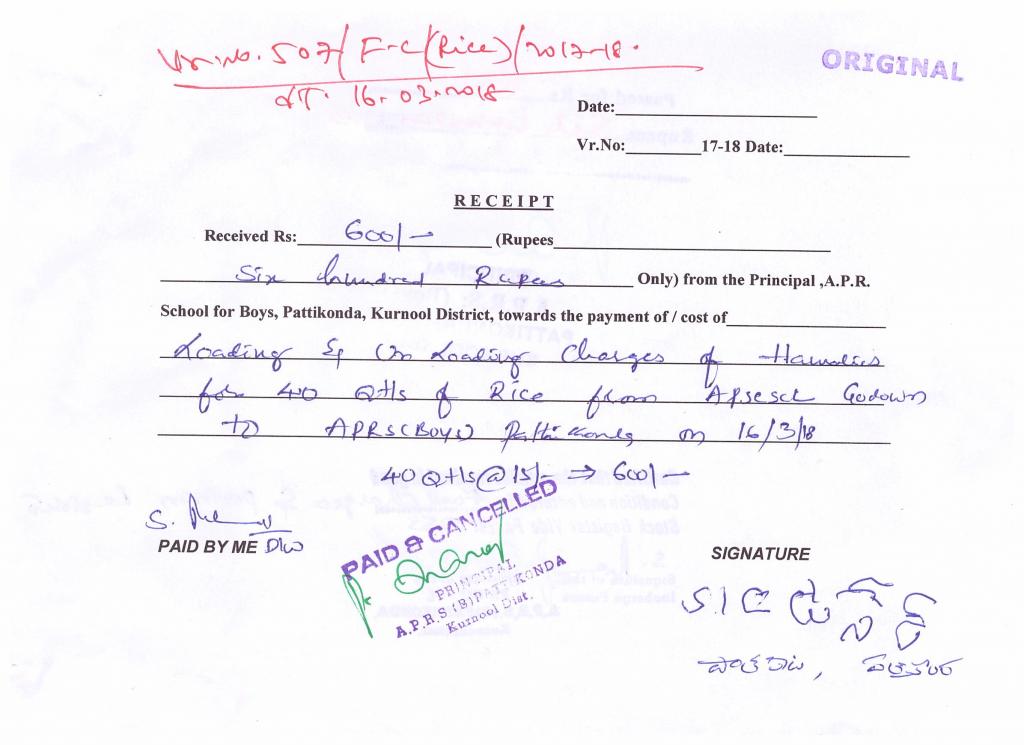 Vr.No. 507/F-C(Rice)/2017-18.
dT. 16.03.2018
ORIGINAL
Date:
Vr.No: 17-18 Date:
RECEIPT
Received Rs: 600/- (Rupees
Six hundred Rupees Only) from the Principal ,A.P.R.
School for Boys, Pattikonda, Kurnool District, towards the payment of / cost of
Loading & Un Loading Charges of Hamalies
for 40 Qtls of Rice from Apscscl Godown
to APRS(Boys) Pattikonda on 16/3/18
40 Qtls@15/- ⇒ 600/-
S.
PAID BY ME
PAID & CANCELLED
PRINCIPAL
A.P.R.S.(B)PATTIKONDA
Kurnool Dist.
SIGNATURE